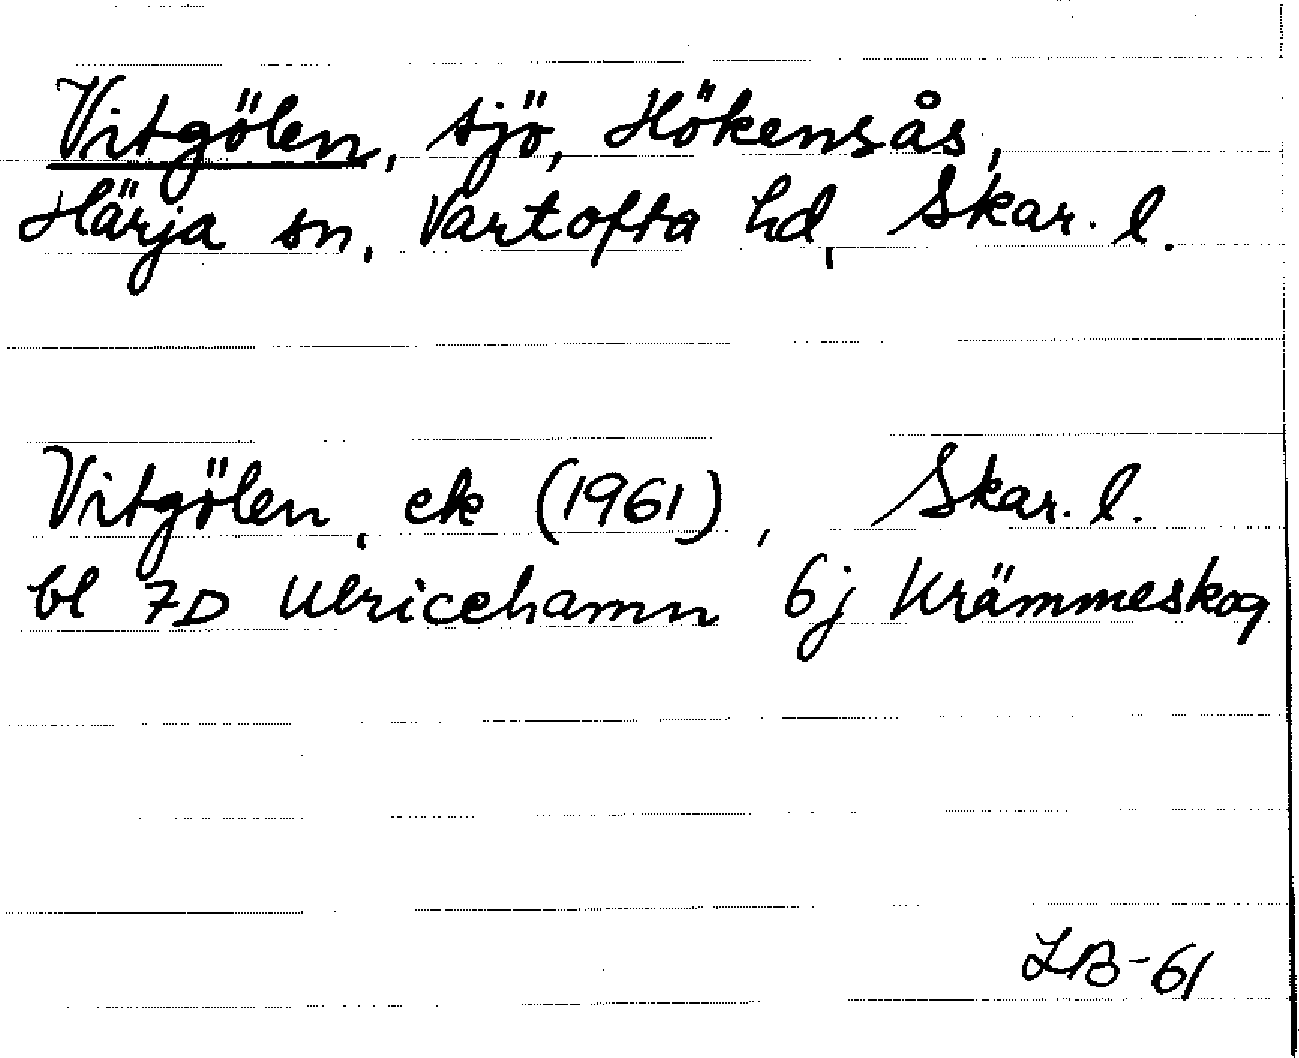 Vitgölen, sjö, Hökensås,
Härja sn, Vartofta hd, Skar. l.
Vitgölen, ek (1961), Skar. l.
bl 7D Ulricehamn 6j Krämmeskog
LB-61